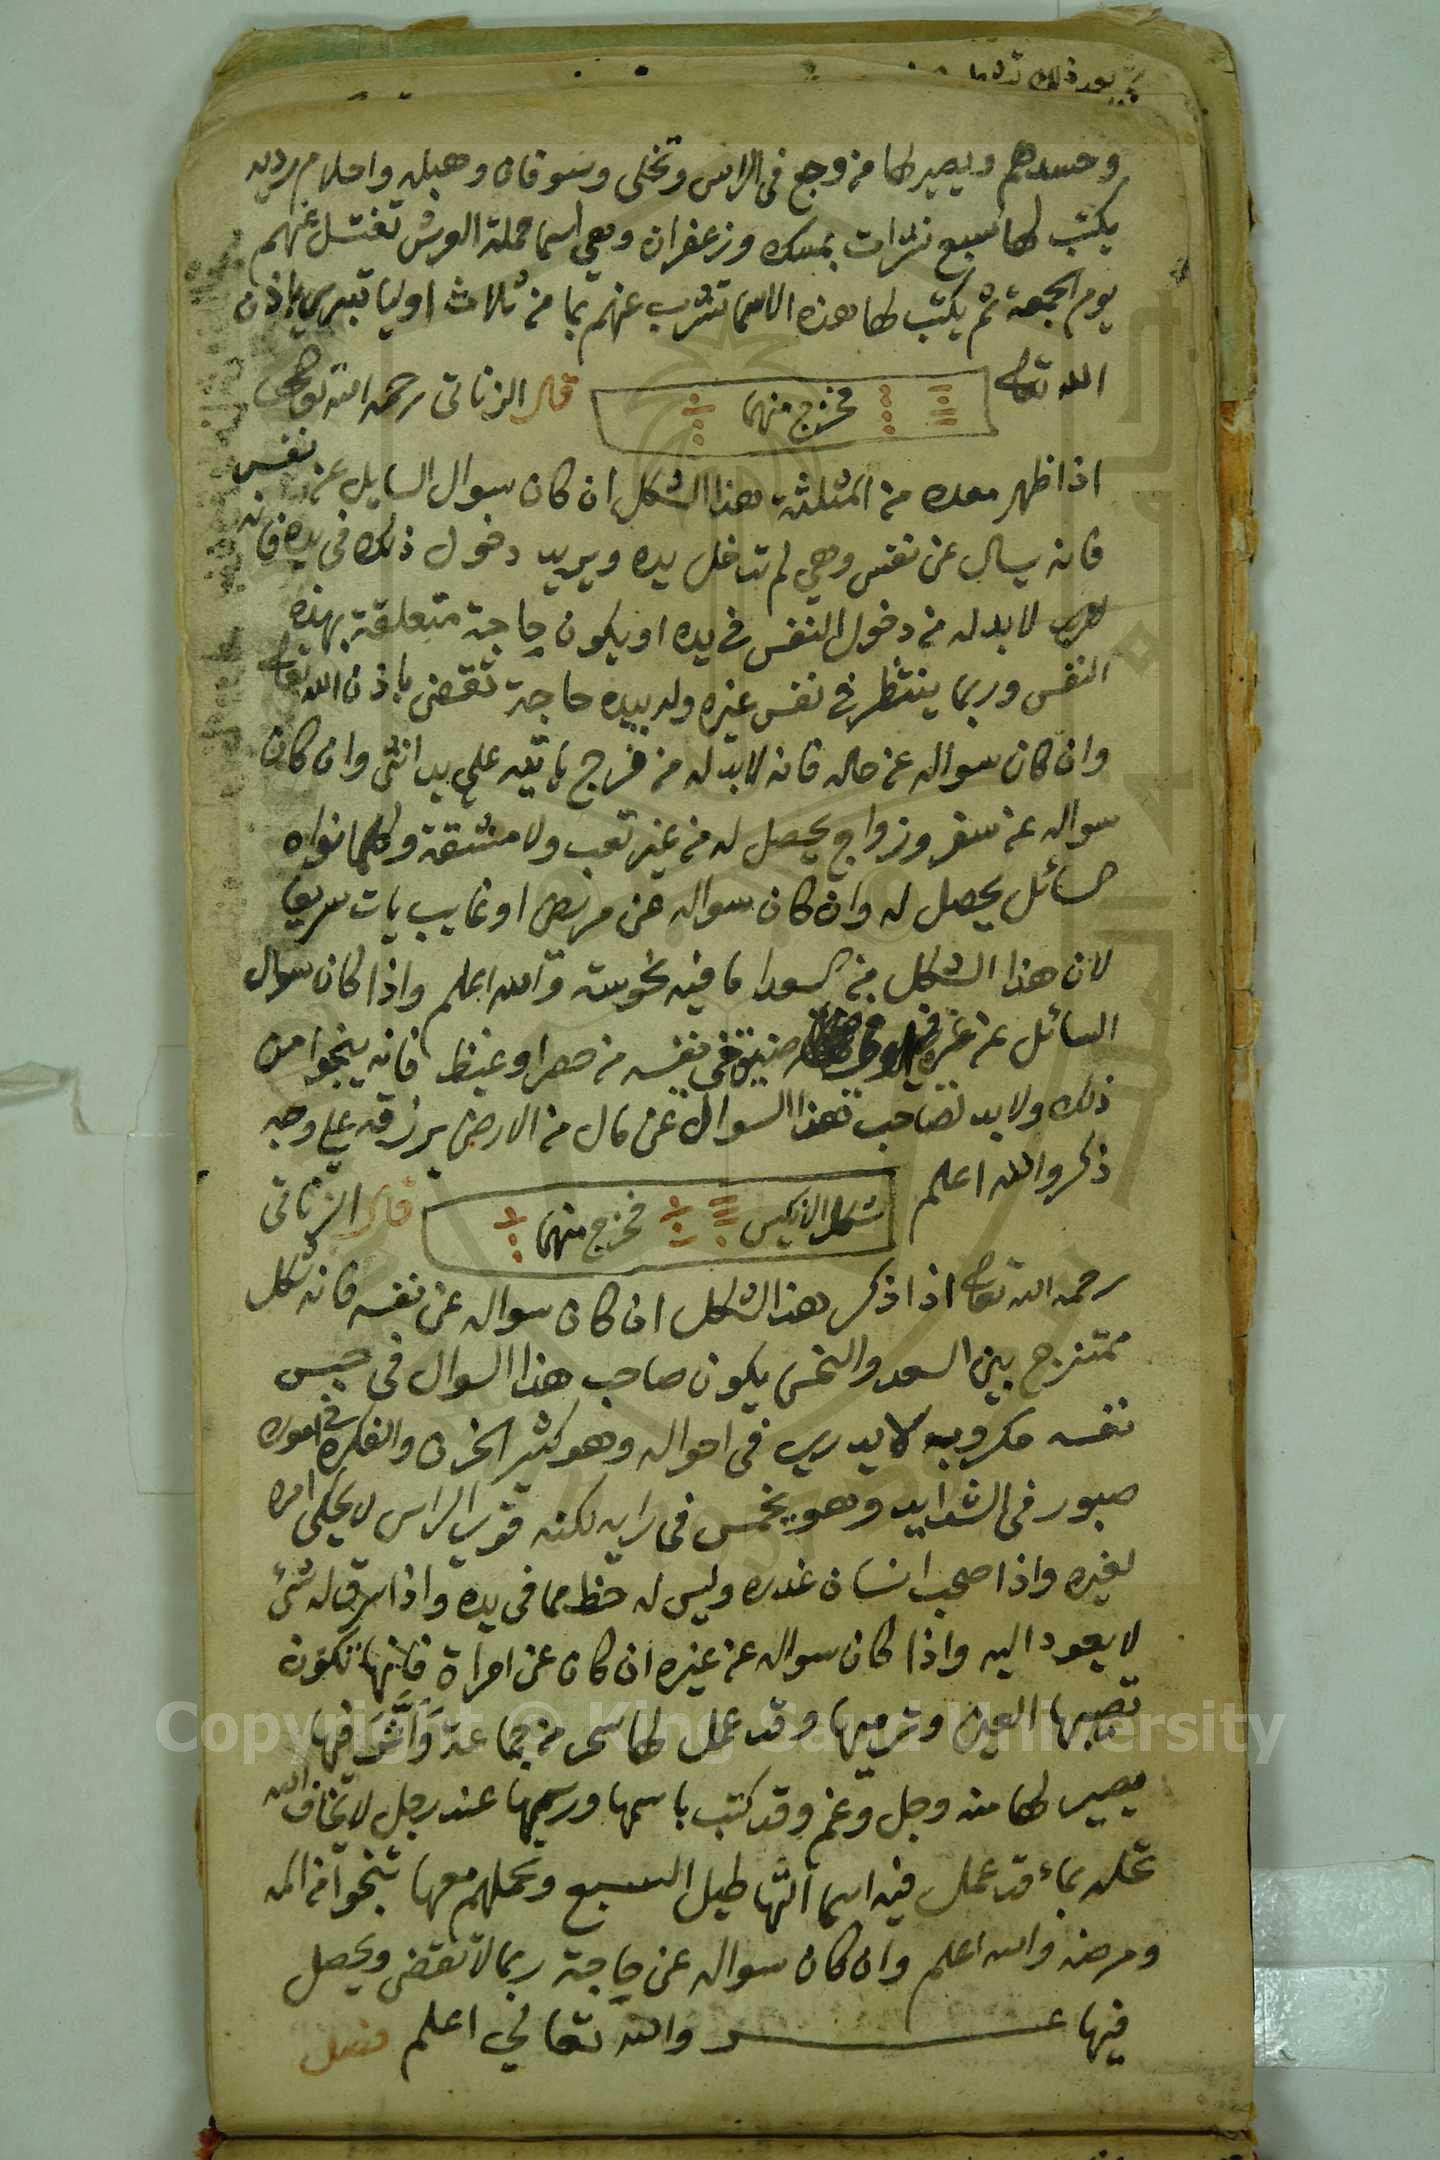 بعد ذلك
وحسدهم ويصير لها من وجع في الراس وتخلي وسوقان وهبله واحلام رديه
يكتب لها سبع نشرات بمسك وزعفران وهي اسما حملة العرش تغتسل عنهم
يوم الجمعة ثم يكتب لها هذه الاسما تشرب عنهم بما من ثلاث اوليا تبري باذن
الله تعالى فخرج منهما قال الزناتي رحمه الله تعالى
اذا ظهر معده من المثلثه هذا الشكل ان كان سوال السايل عن نفس
فانه يسال عن نفس وهي لم تدخل يده ويريد دخول ذلك في يده فانه
لا بد له من دخول النفس في يده او يكون حاجة متعلقة بهذه
النفس وربما ينتظر في نفس غيره وله بيده حاجة تقضى باذن الله تعالى
وان كان سواله عن حاله فانه لا بد له من فرج ياتيه على يد انثى وان كان
سواله عن سفر وزواج يحصل له من غير تعب ولا مشقة وكلما نواه
السائل يحصل له وان كان سواله عن مريض او غايب يات سريعا
لان هذا الشكل من السعدا ما فيه نحوسة والله اعلم واذا كان سوال
السائل عن غيره في نفسه من صهر او غيظ فانه ينجوا من
ذلك ولا بد لصاحب هذا السوال عن مال من الارض يرزقه على وجه
ذكر والله اعلم شكل الانكيس فخرج منهما قال الزناتي
رحمه الله تعالى اذا ذكر هذا الشكل ان كان سواله عن نفسه فانه شكل
ممتزج بين السعد والنحس يكون صاحب هذا السوال في حبس
نفسه مكروب لا يدري في احواله وهو كثير الحزن والفكره في اموره
صبور في الشدايد وهو يخمس في رايه لكنه قوي الراس لا يحكي امره
لغيره واذا صحب انسان غدره وليس له حظ مما في يده واذا سرق له شئ
لا يعود اليه واذا كان سواله عن غيره ان كان عن امراة فانها تكون
تصيبها العين وترميها وقد عمل لها سحر من جماعة واثر فيها
يصير لها منه وجل وغم وقد كتب باسمها ورسمها عند رجل لا يخاف الله
تحله بماء قد عمل فيه اسما التهاطيل السبع وتحملهم معها تنجوا من المه
ومرضه والله اعلم وان كان سواله عن حاجة ربما لا تقضى ويحصل
فيها عسر والله تعالى اعلم فصل